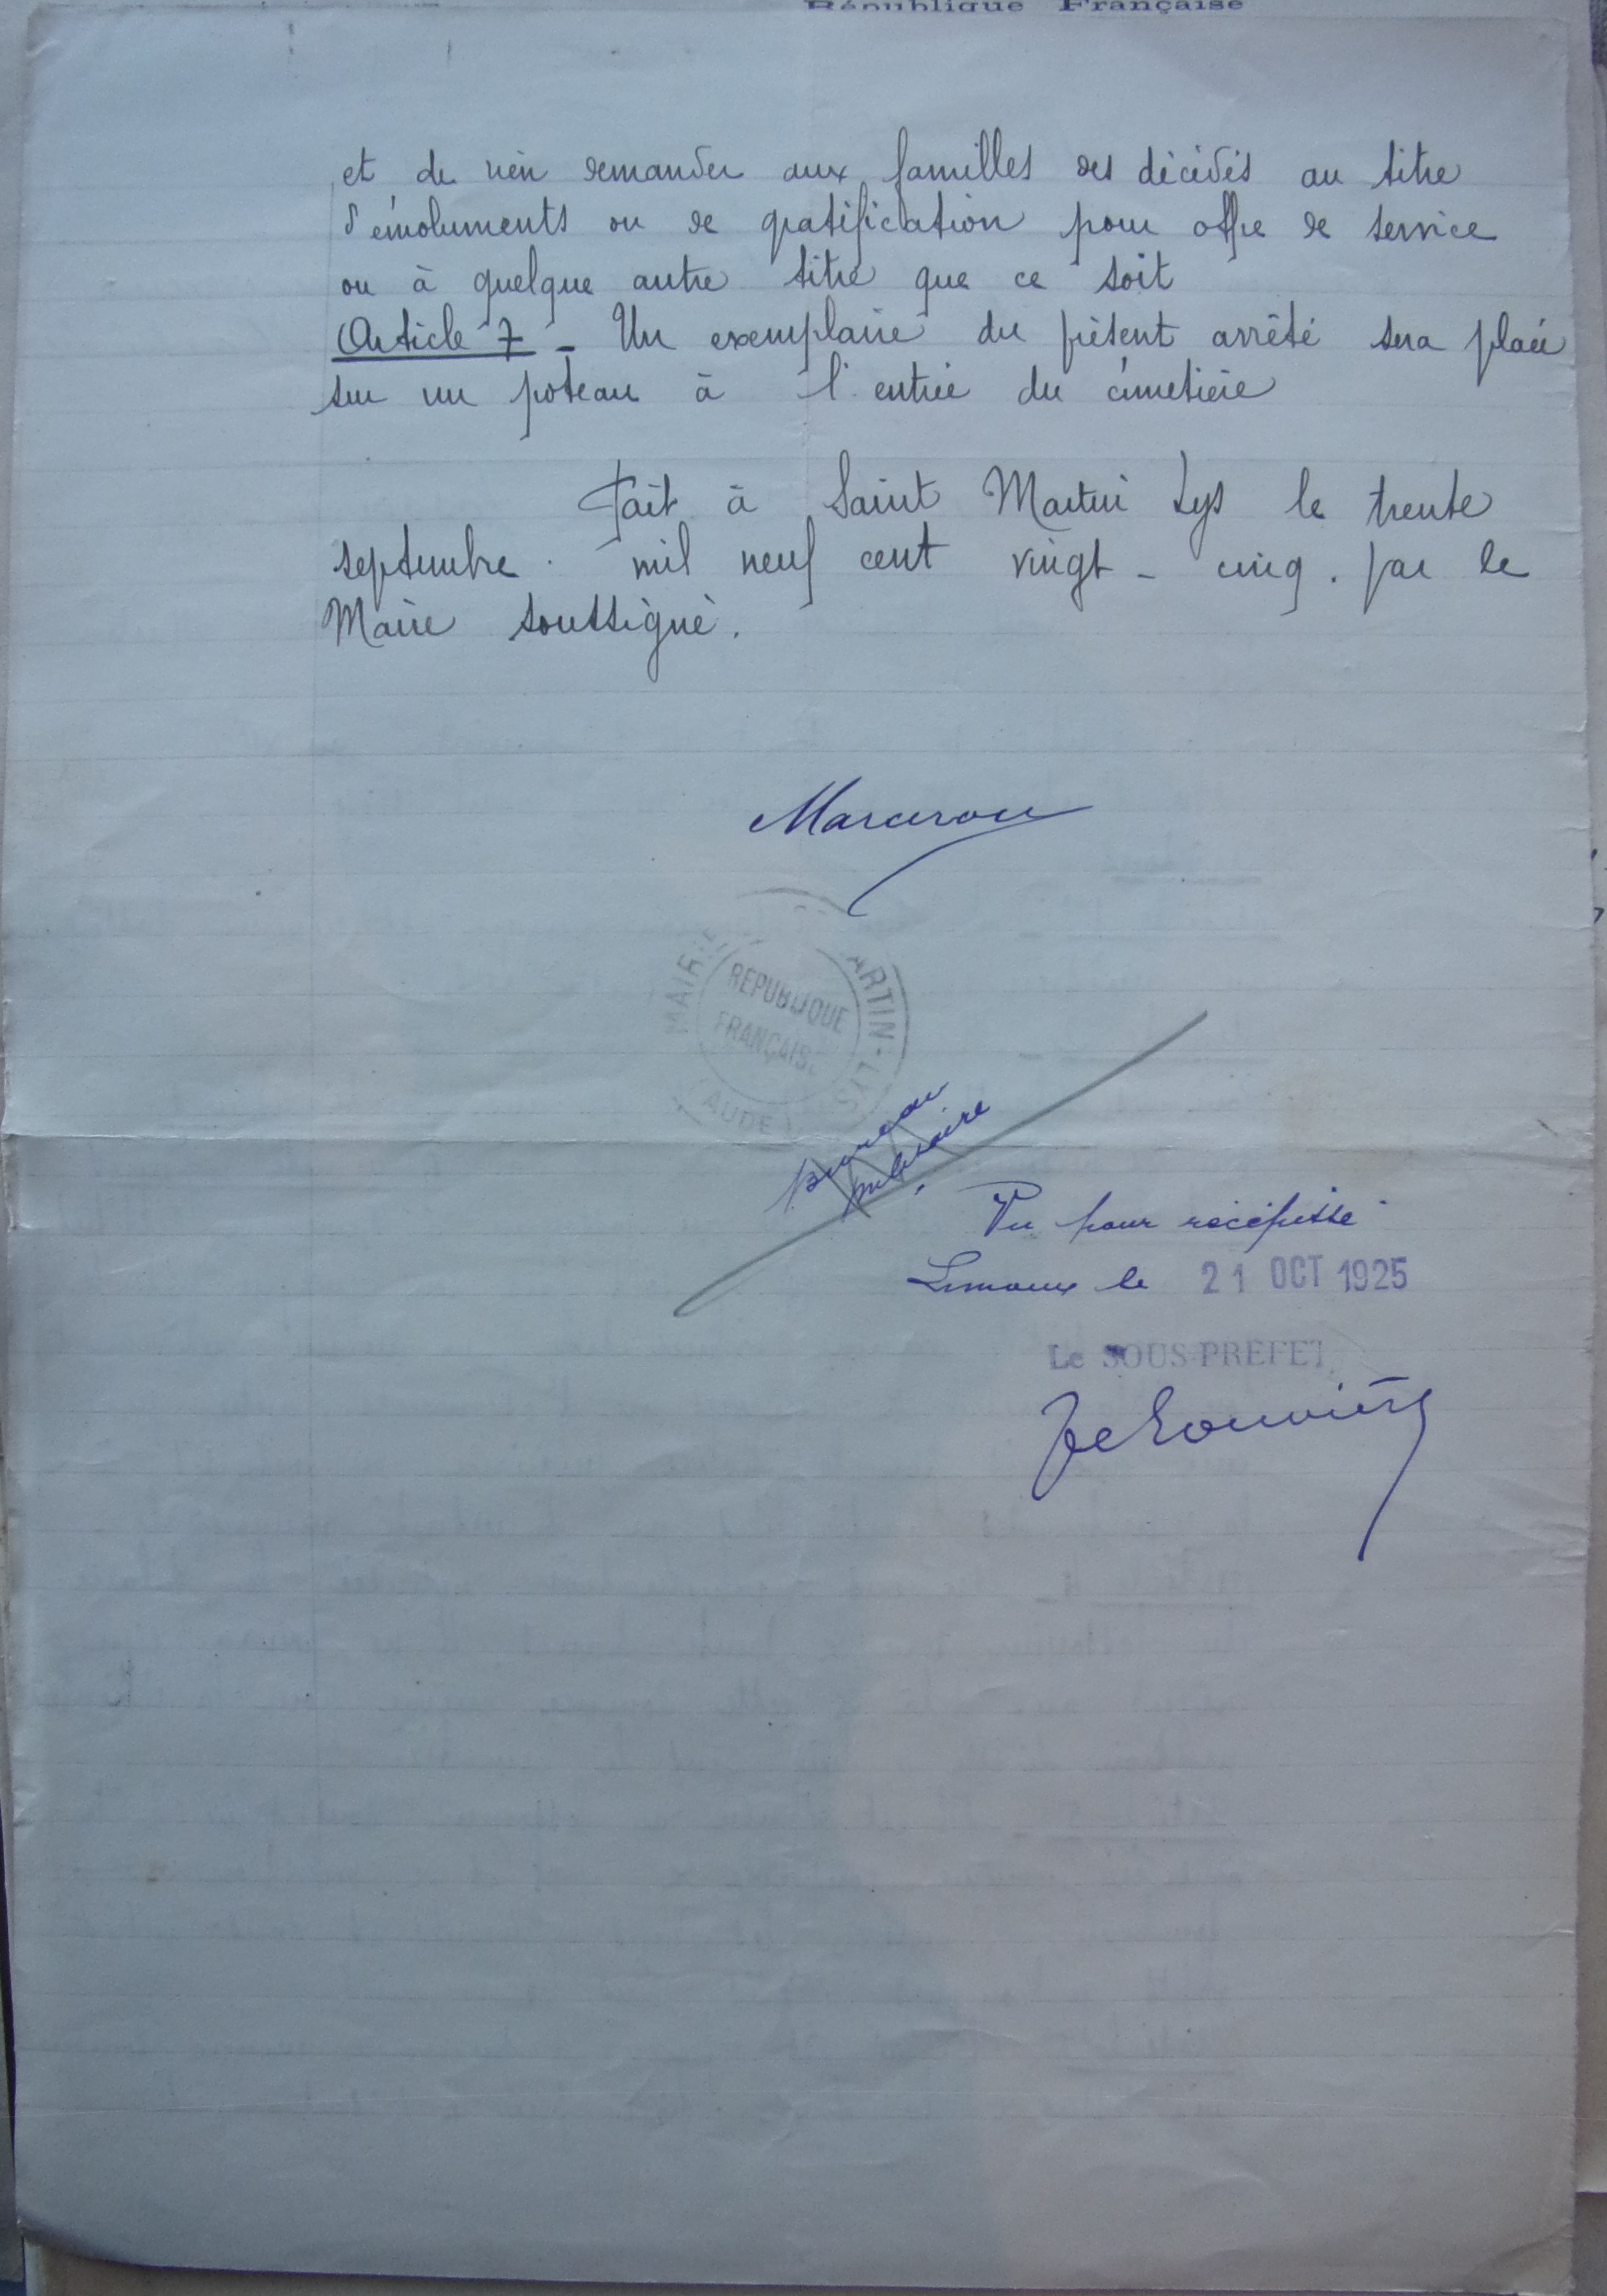 République Française
et de rien demander aux familles des décédés au titre
d'émoluments ou de gratification pour offre de service
ou à quelque autre titre que ce soit
Article 7 - Un exemplaire du présent arrêté sera placé
sur un poteau à l'entrée du cimetière
Fait à Saint Martin Lys le trente
septembre. mil neuf cent vingt-cinq. par le
Maire soussigné.
MAIRIE ARTIN-LYS
REPUBLIQUE
FRANÇAISE
AUDE
Bureau
militaire
Vu pour récépissé
Limoux le 21 OCT 1925
Le SOUS-PREFET